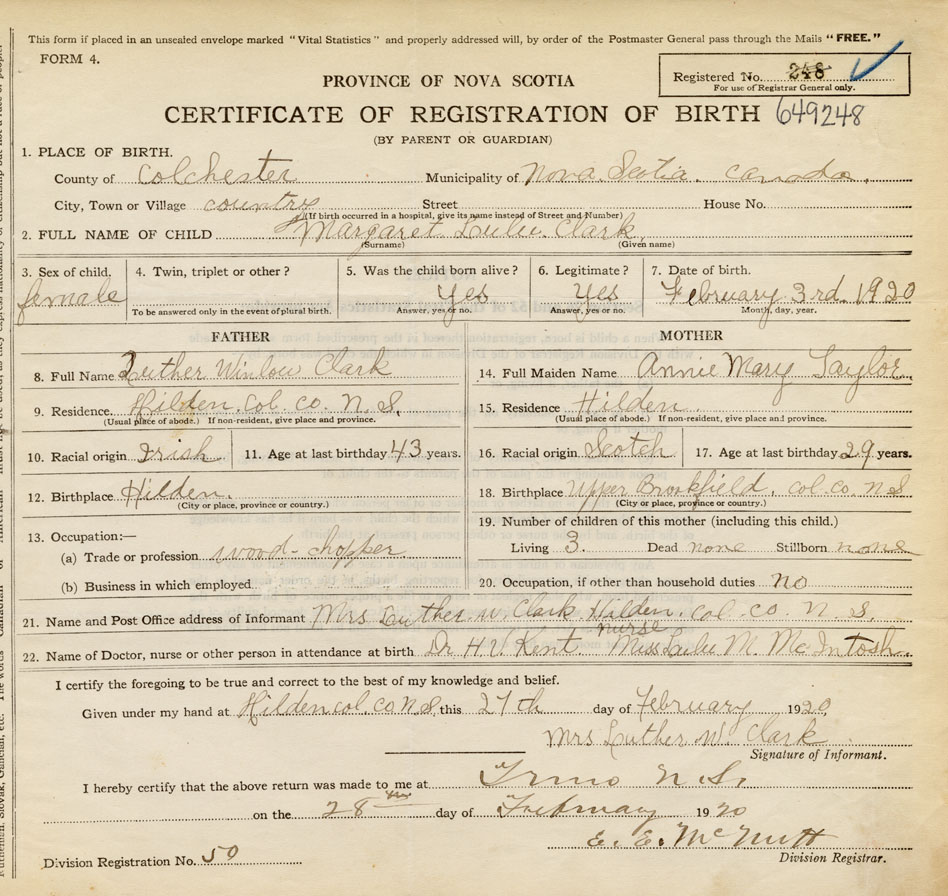 This form if placed in an unsealed envelope marked "Vital Statistics" and properly addressed will, by order of the Postmaster General pass through the Mails "FREE."
FORM 4.
Registered No. 248
For use of Registrar General only.
PROVINCE OF NOVA SCOTIA
CERTIFICATE OF REGISTRATION OF BIRTH 649248
(BY PARENT OR GUARDIAN)
1. PLACE OF BIRTH.
County of Colchester Municipality of Nova Scotia. Canada.
City, Town or Village country Street House No.
(If birth occurred in a hospital, give its name instead of Street and Number)
2. FULL NAME OF CHILD Margaret Lulu Clark
(Surname) (Given name)
3. Sex of child. 4. Twin, triplet or other? 5. Was the child born alive? 6. Legitimate? 7. Date of birth.
female Yes Yes February 3rd 1920
To be answered only in the event of plural birth. Answer, yes or no. Answer, yes or no. Month, day, year.
FATHER
8. Full Name Luther Winlow Clark
9. Residence. Hilden. Col. co. N. S.
(Usual place of abode.) If non-resident, give place and province.
10. Racial origin Irish 11. Age at last birthday 43 years.
12. Birthplace Hilden.
(City or place, province or country.)
13. Occupation:—
(a) Trade or profession wood-chopper
(b) Business in which employed
MOTHER
14. Full Maiden Name Annie Mary Taylor
15. Residence Hilden
(Usual place of abode.) If non-resident, give place and province.
16. Racial origin Scotch 17. Age at last birthday 29 years.
18. Birthplace Upper Brookfield. col. co N S
(City or place, province or country.)
19. Number of children of this mother (including this child.)
Living 3. Dead none Stillborn none
20. Occupation, if other than household duties no
21. Name and Post Office address of Informant Mrs Luther W. Clark Hilden. Col. co. N. S.
nurse
22. Name of Doctor, nurse or other person in attendance at birth Dr H. V. Kent Miss Lulu M. McIntosh
I certify the foregoing to be true and correct to the best of my knowledge and belief.
Given under my hand at Hilden col. co N S, this 27th day of February 1920
Mrs Luther W. Clark
Signature of Informant.
I hereby certify that the above return was made to me at Truro N. S.
on the 28th day of February 1920
E. E. McNutt
Division Registrar.
Division Registration No. 50